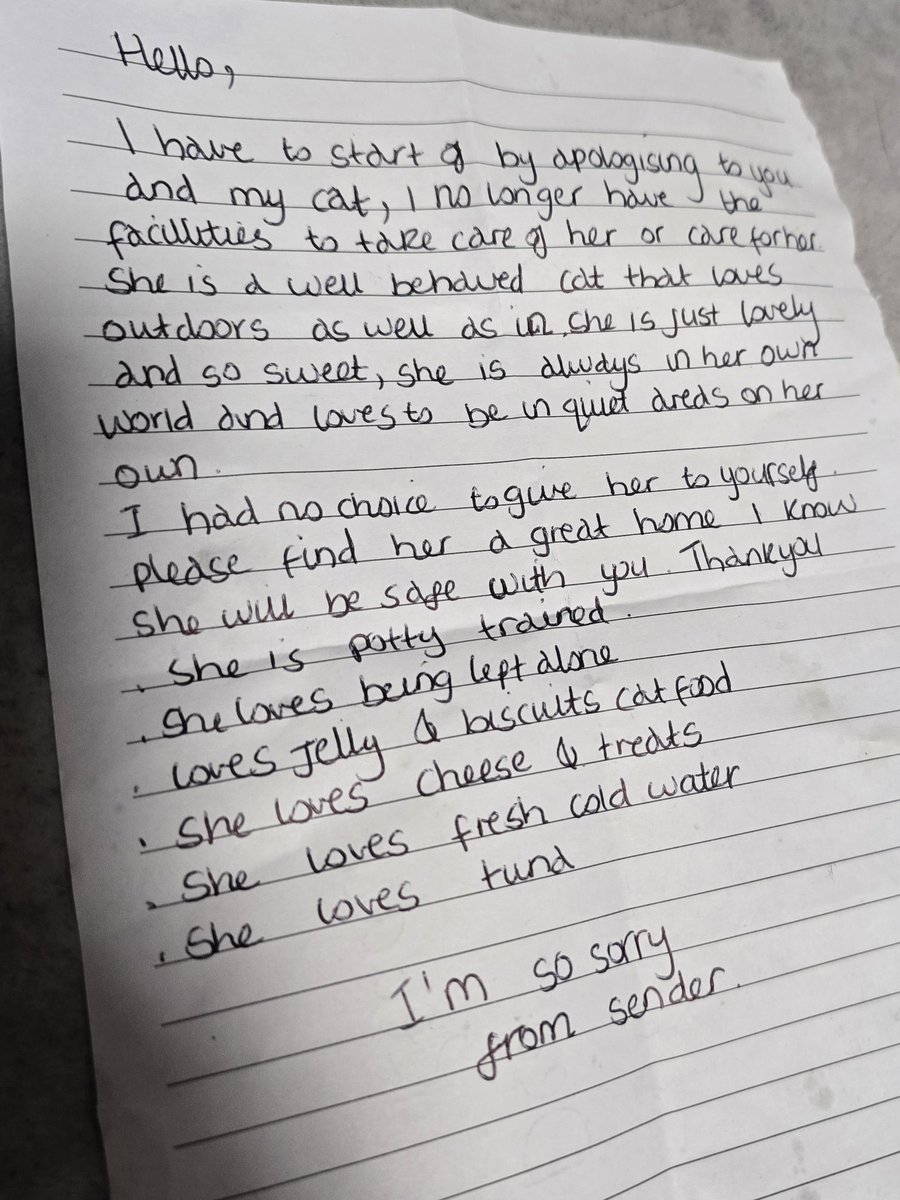 Hello,
I have to start of by apologising to you
and my cat, I no longer have the
facillities to take care of her or care for her.
She is a well behaved cat that loves
outdoors as well as in, she is just lovely
and so sweet, she is always in her own
world and loves to be in quiet areas on her
own.
I had no choice to give her to yourself.
please find her a great home I know
she will be safe with you. Thankyou
. She is potty trained.
. She loves being left alone
. Loves Jelly & biscuits cat food
. She loves cheese & treats
. She loves fresh cold water
. She loves tuna
I'm so sorry
from sender.